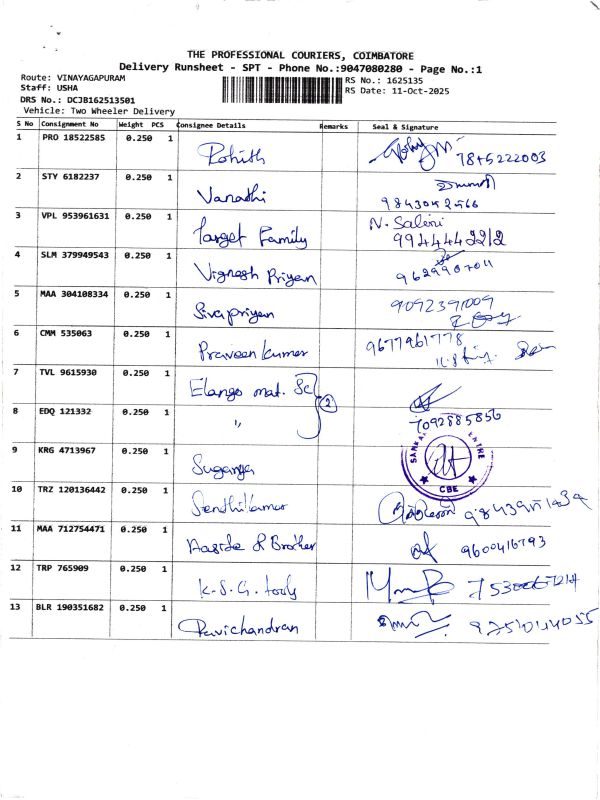 THE PROFESSIONAL COURIERS, COIMBATORE
Delivery Runsheet - SPT - Phone No.:9047080280 - Page No.:1
Route: VINAYAGAPURAM
RS No.: 1625135
Staff: USHA
RS Date: 11-Oct-2025
DRS No.: DCJB162513501
Vehicle: Two Wheeler Delivery
S No Consignment No Weight PCS Consignee Details Remarks Seal & Signature
1 PRO 18522585 0.250 1 Rohith
2 STY 6182237 0.250 1 Vanathi
3 VPL 953961631 0.250 1 Target Family N. Saleni
9944442212
4 SLM 379949543 0.250 1 Vignesh Priyan
5 MAA 304108334 0.250 1 Sivapriyan
6 CMM 535063 0.250 1 Praveen Kumar 9677961778
7 TVL 9615930 0.250 1 Elango mat. Sc
2
8 EDQ 121332 0.250 1 " 7092885856
9 KRG 4713967 0.250 1 Suganya
CBE
10 TRZ 120136442 0.250 1 Senthilkumar
11 MAA 712754471 0.250 1 9600416793
12 TRP 765909 0.250 1 K.S.G. tools
13 BLR 190351682 0.250 1 Ravichandran